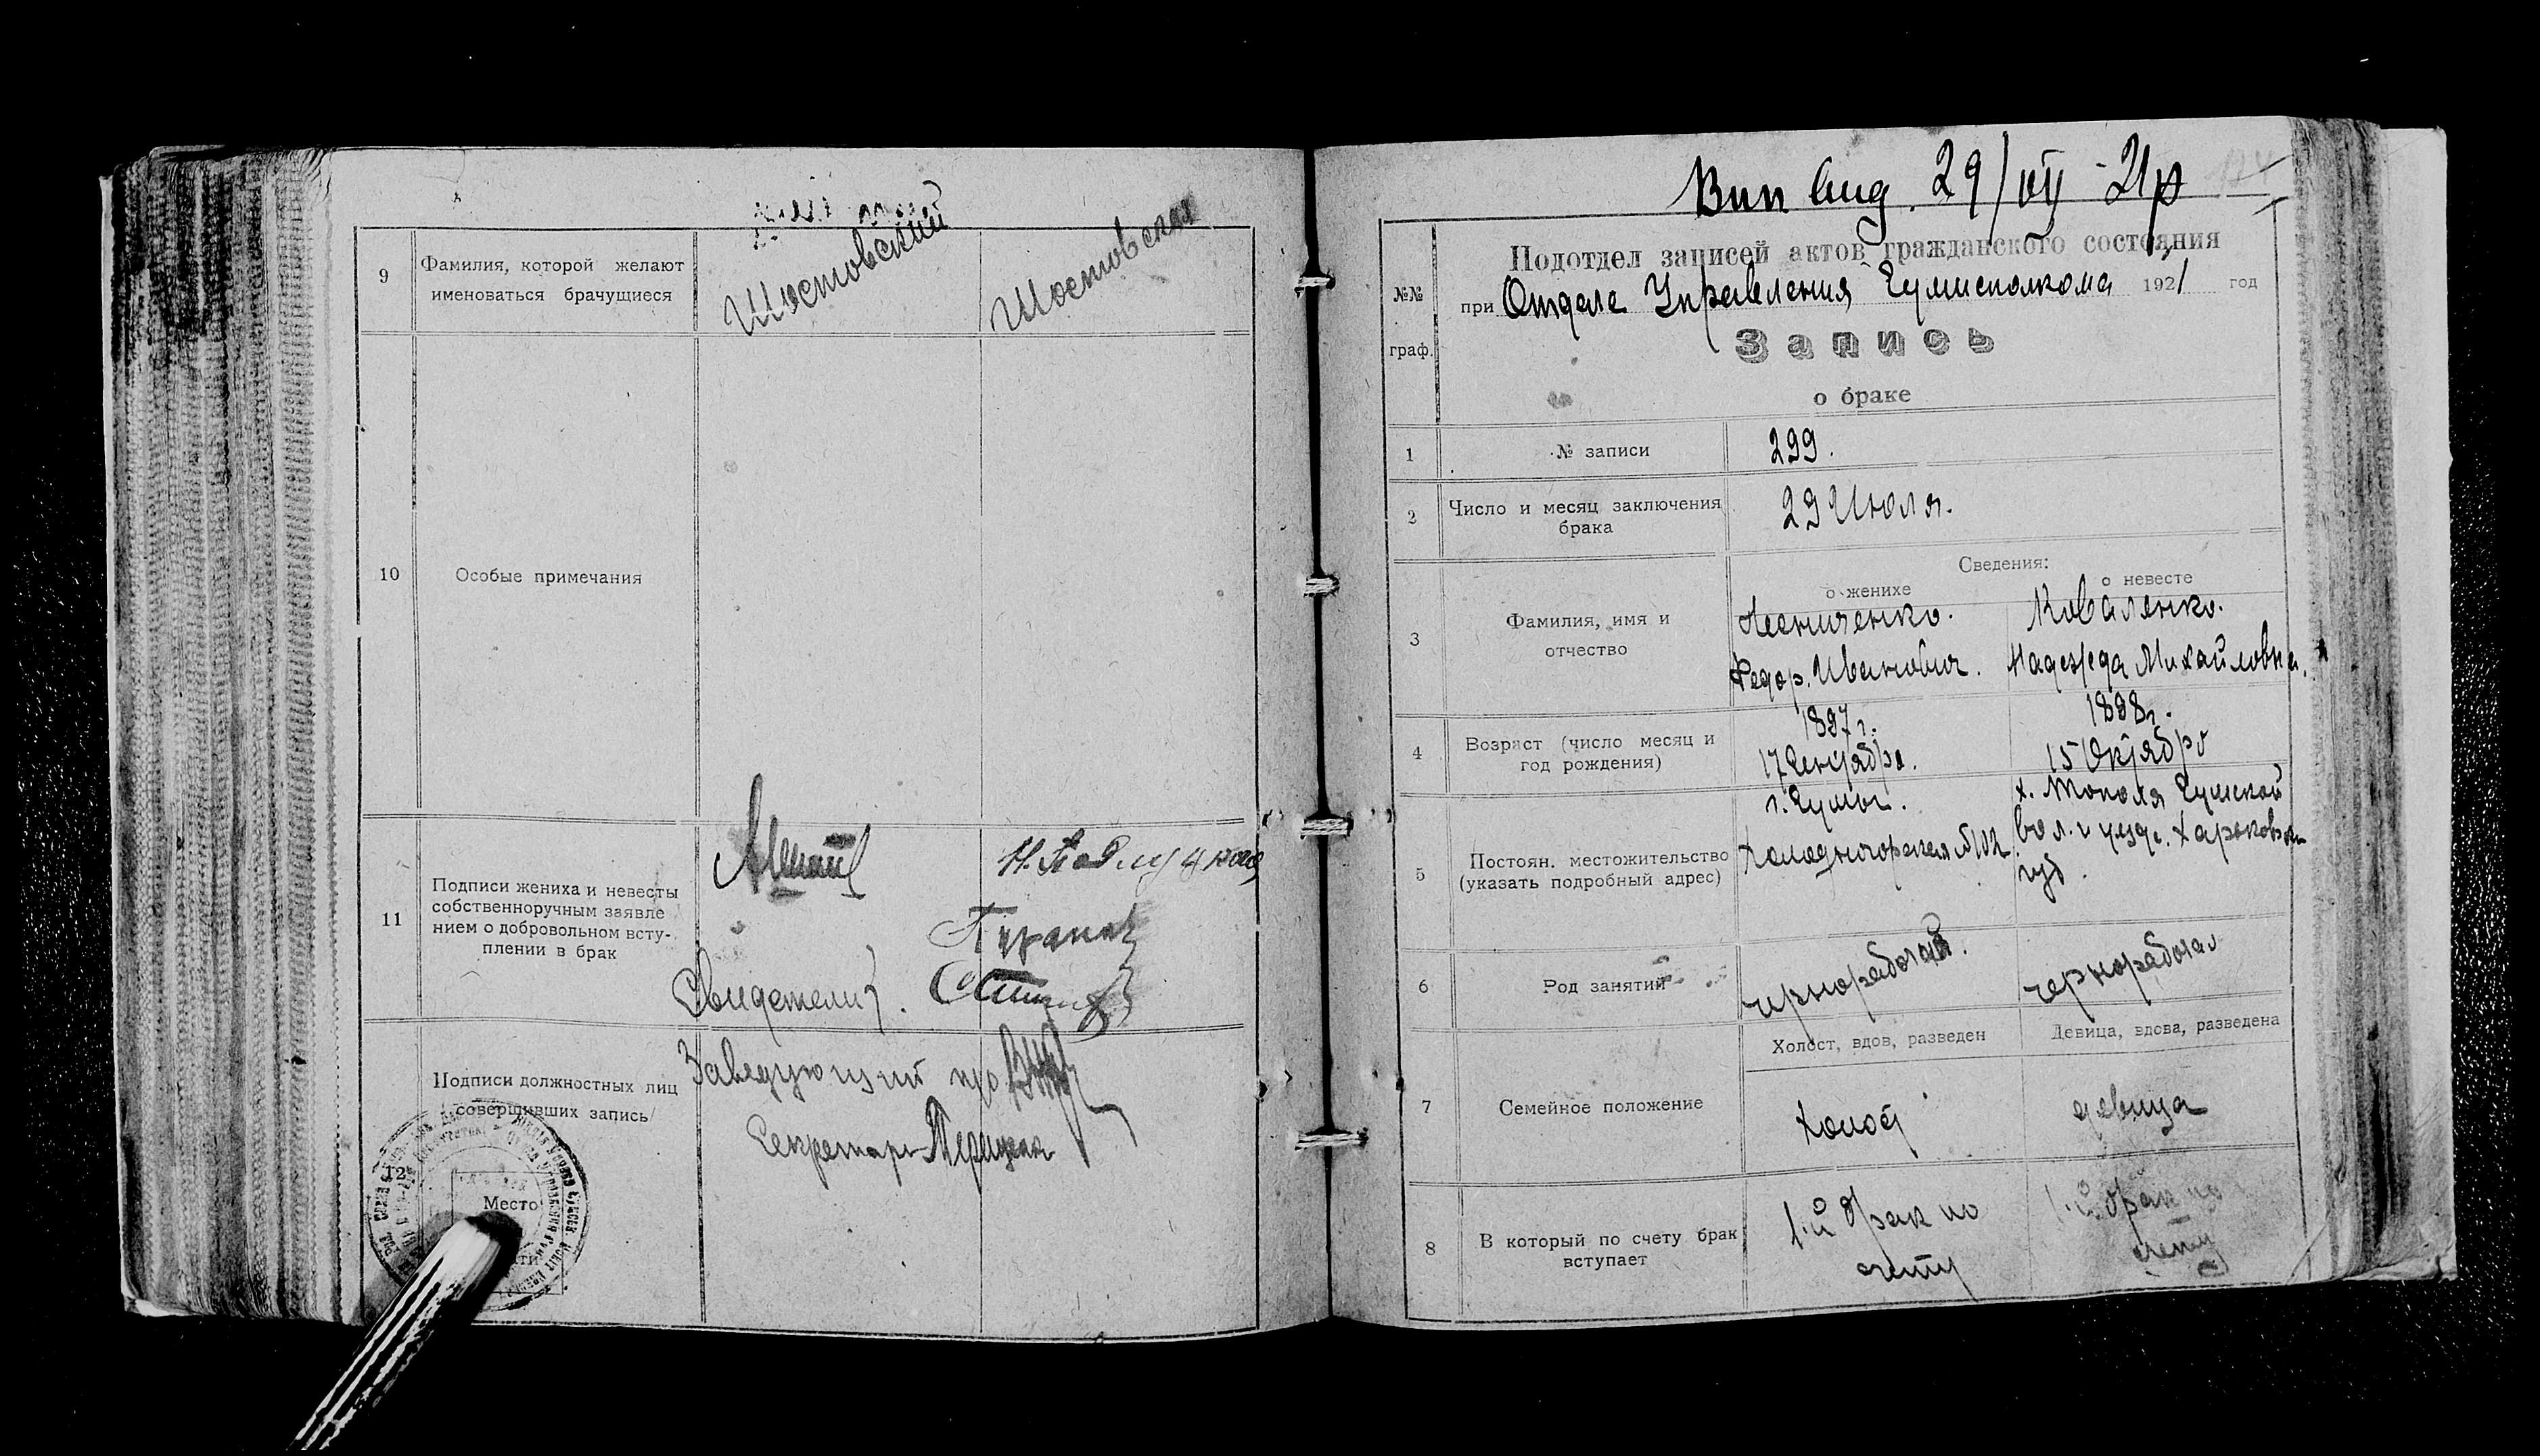 9
Фамилия, которой желают
именоваться брачущиеся
Шостовский
Шостовская
10
Особые примечания
11
Подписи жениха и невесты
собственноручным заявле
нием о добровольном всту-
плении в брак
Свидетели
Подписи должностных лиц
совершивших запись
Заведующий п/о
Секретарь
12
Место
Вип вид. 29/VII - 21р
№№
граф.
Подотдел записей актов гражданского состояния
при Отделе Управления Сумисполкома 1921 год
Запись
о браке
1
№ записи
299.
2
Число и месяц заключения
брака
29 Июля.
Сведения:
о женихе
о невесте
3
Фамилия, имя и
отчество
Коваленко.
Федор. Иванович.
Надежда Михайловна.
4
Возраст (число месяц и
год рождения)
1897 г.
17 Сентября.
1898 г.
15 Октября
5
Постоян. местожительство
(указать подробный адрес)
г. Сумы.
Холодногорская №102
х. Тополя Сумской
вол. и уезд. Харьковской
губ.
6
Род занятий
чернорабочий.
чернорабочая
7
Семейное положение
Холост, вдов, разведен
Девица, вдова, разведена
холост
девица
8
В который по счету брак
вступает
1-й брак по
счету
1-й брак по
счету